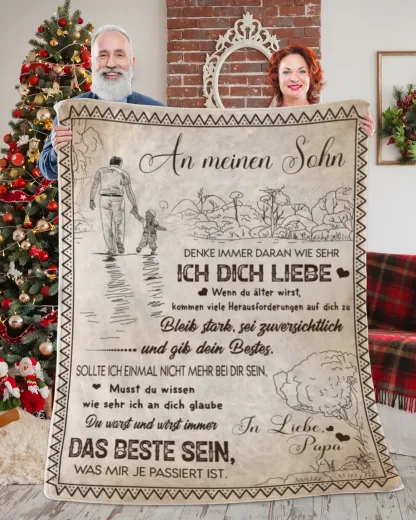 An meinen Sohn
DENKE IMMER DARAN WIE SEHR
ICH DICH LIEBE
Wenn du älter wirst,
kommen viele Herausforderungen auf dich zu
Bleib stark, sei zuversichtlich
und gib dein Bestes.
SOLLTE ICH EINMAL NICHT MEHR BEI DIR SEIN,
Musst du wissen
wie sehr ich an dich glaube
Du warst und wirst immer
DAS BESTE SEIN,
WAS MIR JE PASSIERT IST.
In Liebe,
Papa